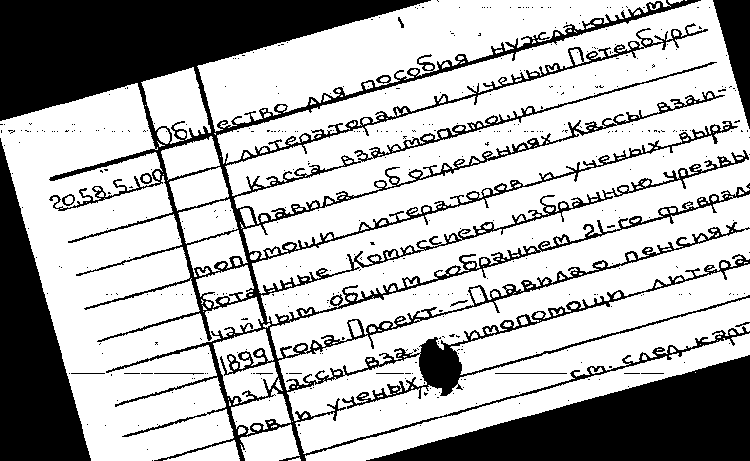 Общество для пособия нуждающимся
литераторам и ученым. Петербург.
Касса взаимопомощи.
20.58.5.100
Правила об отделениях Кассы взаи-
мопомощи литераторов и ученых, выра-
ботанные Комиссиею, избранною чрезвы
чайным общим собранием 21-го феврал
1899 года. Проект. – Правила о пенсиях
из Кассы взаимопомощи литера
ров и ученых
ст. след. карт